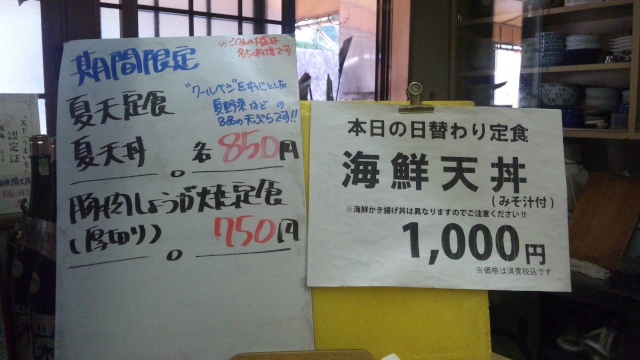 期間限定
夏天定食
"クールベジ"を中心とした
夏野菜などの
8品の天ぷらです!!
夏天丼 各850円
豚肉しょうが焼定食
(厚切り) 750円
本日の日替わり定食
海鮮天丼
(みそ汁付)
※海鮮かき揚げ丼は異なりますのでご注意ください!!
1,000円
※価格は消費税込です
認定証